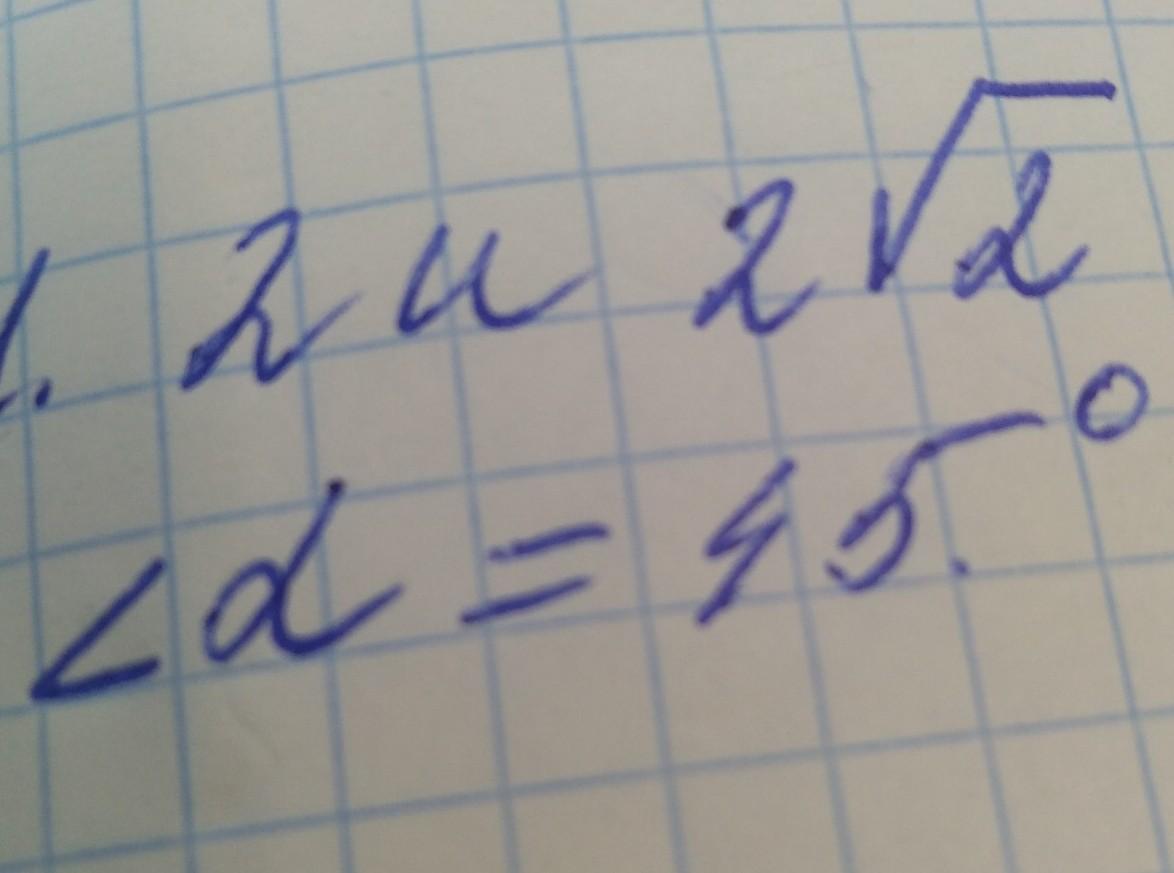 1. 2 и 2√2
<α = 45°.